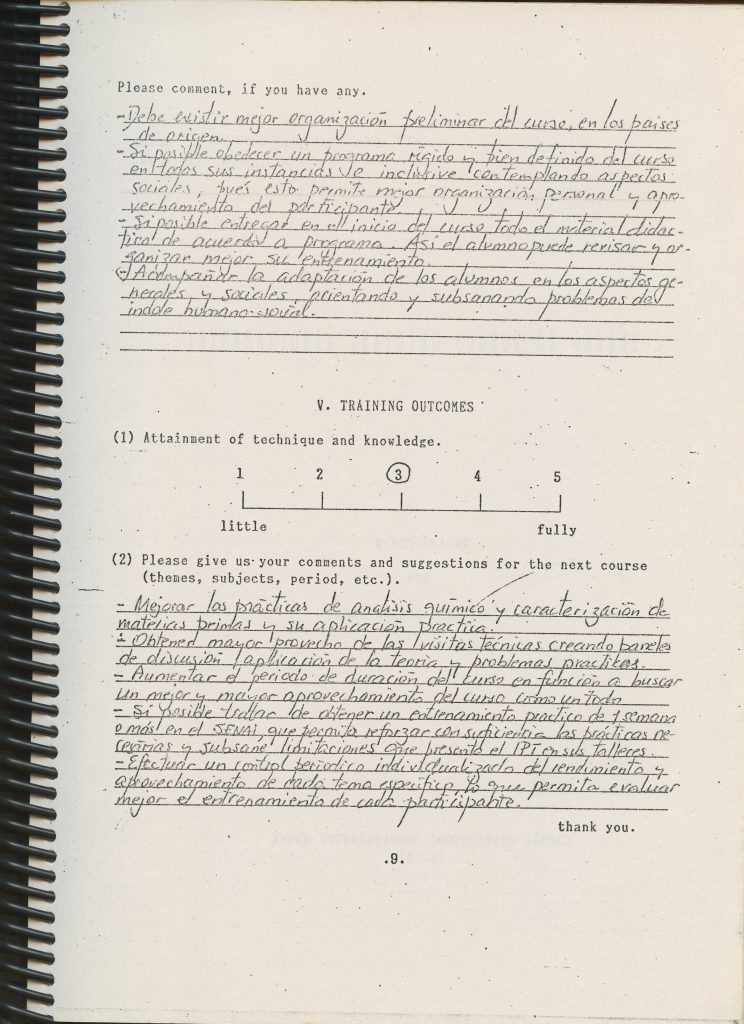 Please comment, if you have any.
- Debe existir mejor organización preliminar del curso, en los paises
de origen.
- Si posible obedecer un programa rígido y bien definido del curso
en todos sus instancias e inclusive contemplando aspectos
sociales, pues esto permite mejor organización personal y apro-
vechamiento del participante.
- Si posible entregar en el inicio del curso, todo el material didac-
tico de acuerdo a programa. Asi el alumno puede revisar y or-
ganizar mejor su entrenamiento.
- Acompañar la adaptación de los alumnos en los aspectos ge-
nerales y sociales, orientando y subsanando problemas de
indole humano-social.
V. TRAINING OUTCOMES
(1) Attainment of technique and knowledge.
1 2 3 4 5
little fully
(2) Please give us your comments and suggestions for the next course
(themes, subjects, period, etc.).
- Mejorar las prácticas de analisis químico y caracterización de
materias primas y su aplicación practica.
- Obtener mayor provecho de las visitas técnicas creando paneles
de discusión, aplicación de la teoria y problemas practicos.
- Aumentar el periodo de duración del curso en función a buscar
un mejor y mayor aprovechamiento del curso como un todo
- Si posible tratar de obtener un entrenamiento practico de 1 semana
o más en el SENAI, que permita reforzar con suficiencia las prácticas ne-
cesarias y subsane limitaciones que presenta el IPT en sus talleres.
- Efectuar un control periodico individualizado del rendimiento y
aprovechamiento de cada tema especifico, lo que permita evaluar
mejor el entrenamiento de cada participante.
thank you.
.9.